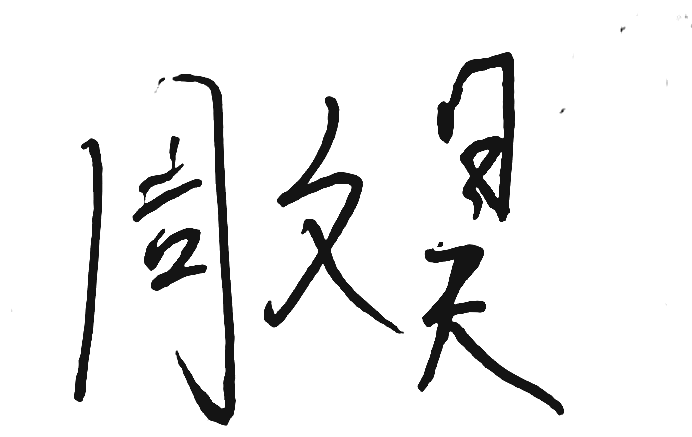 周文昊